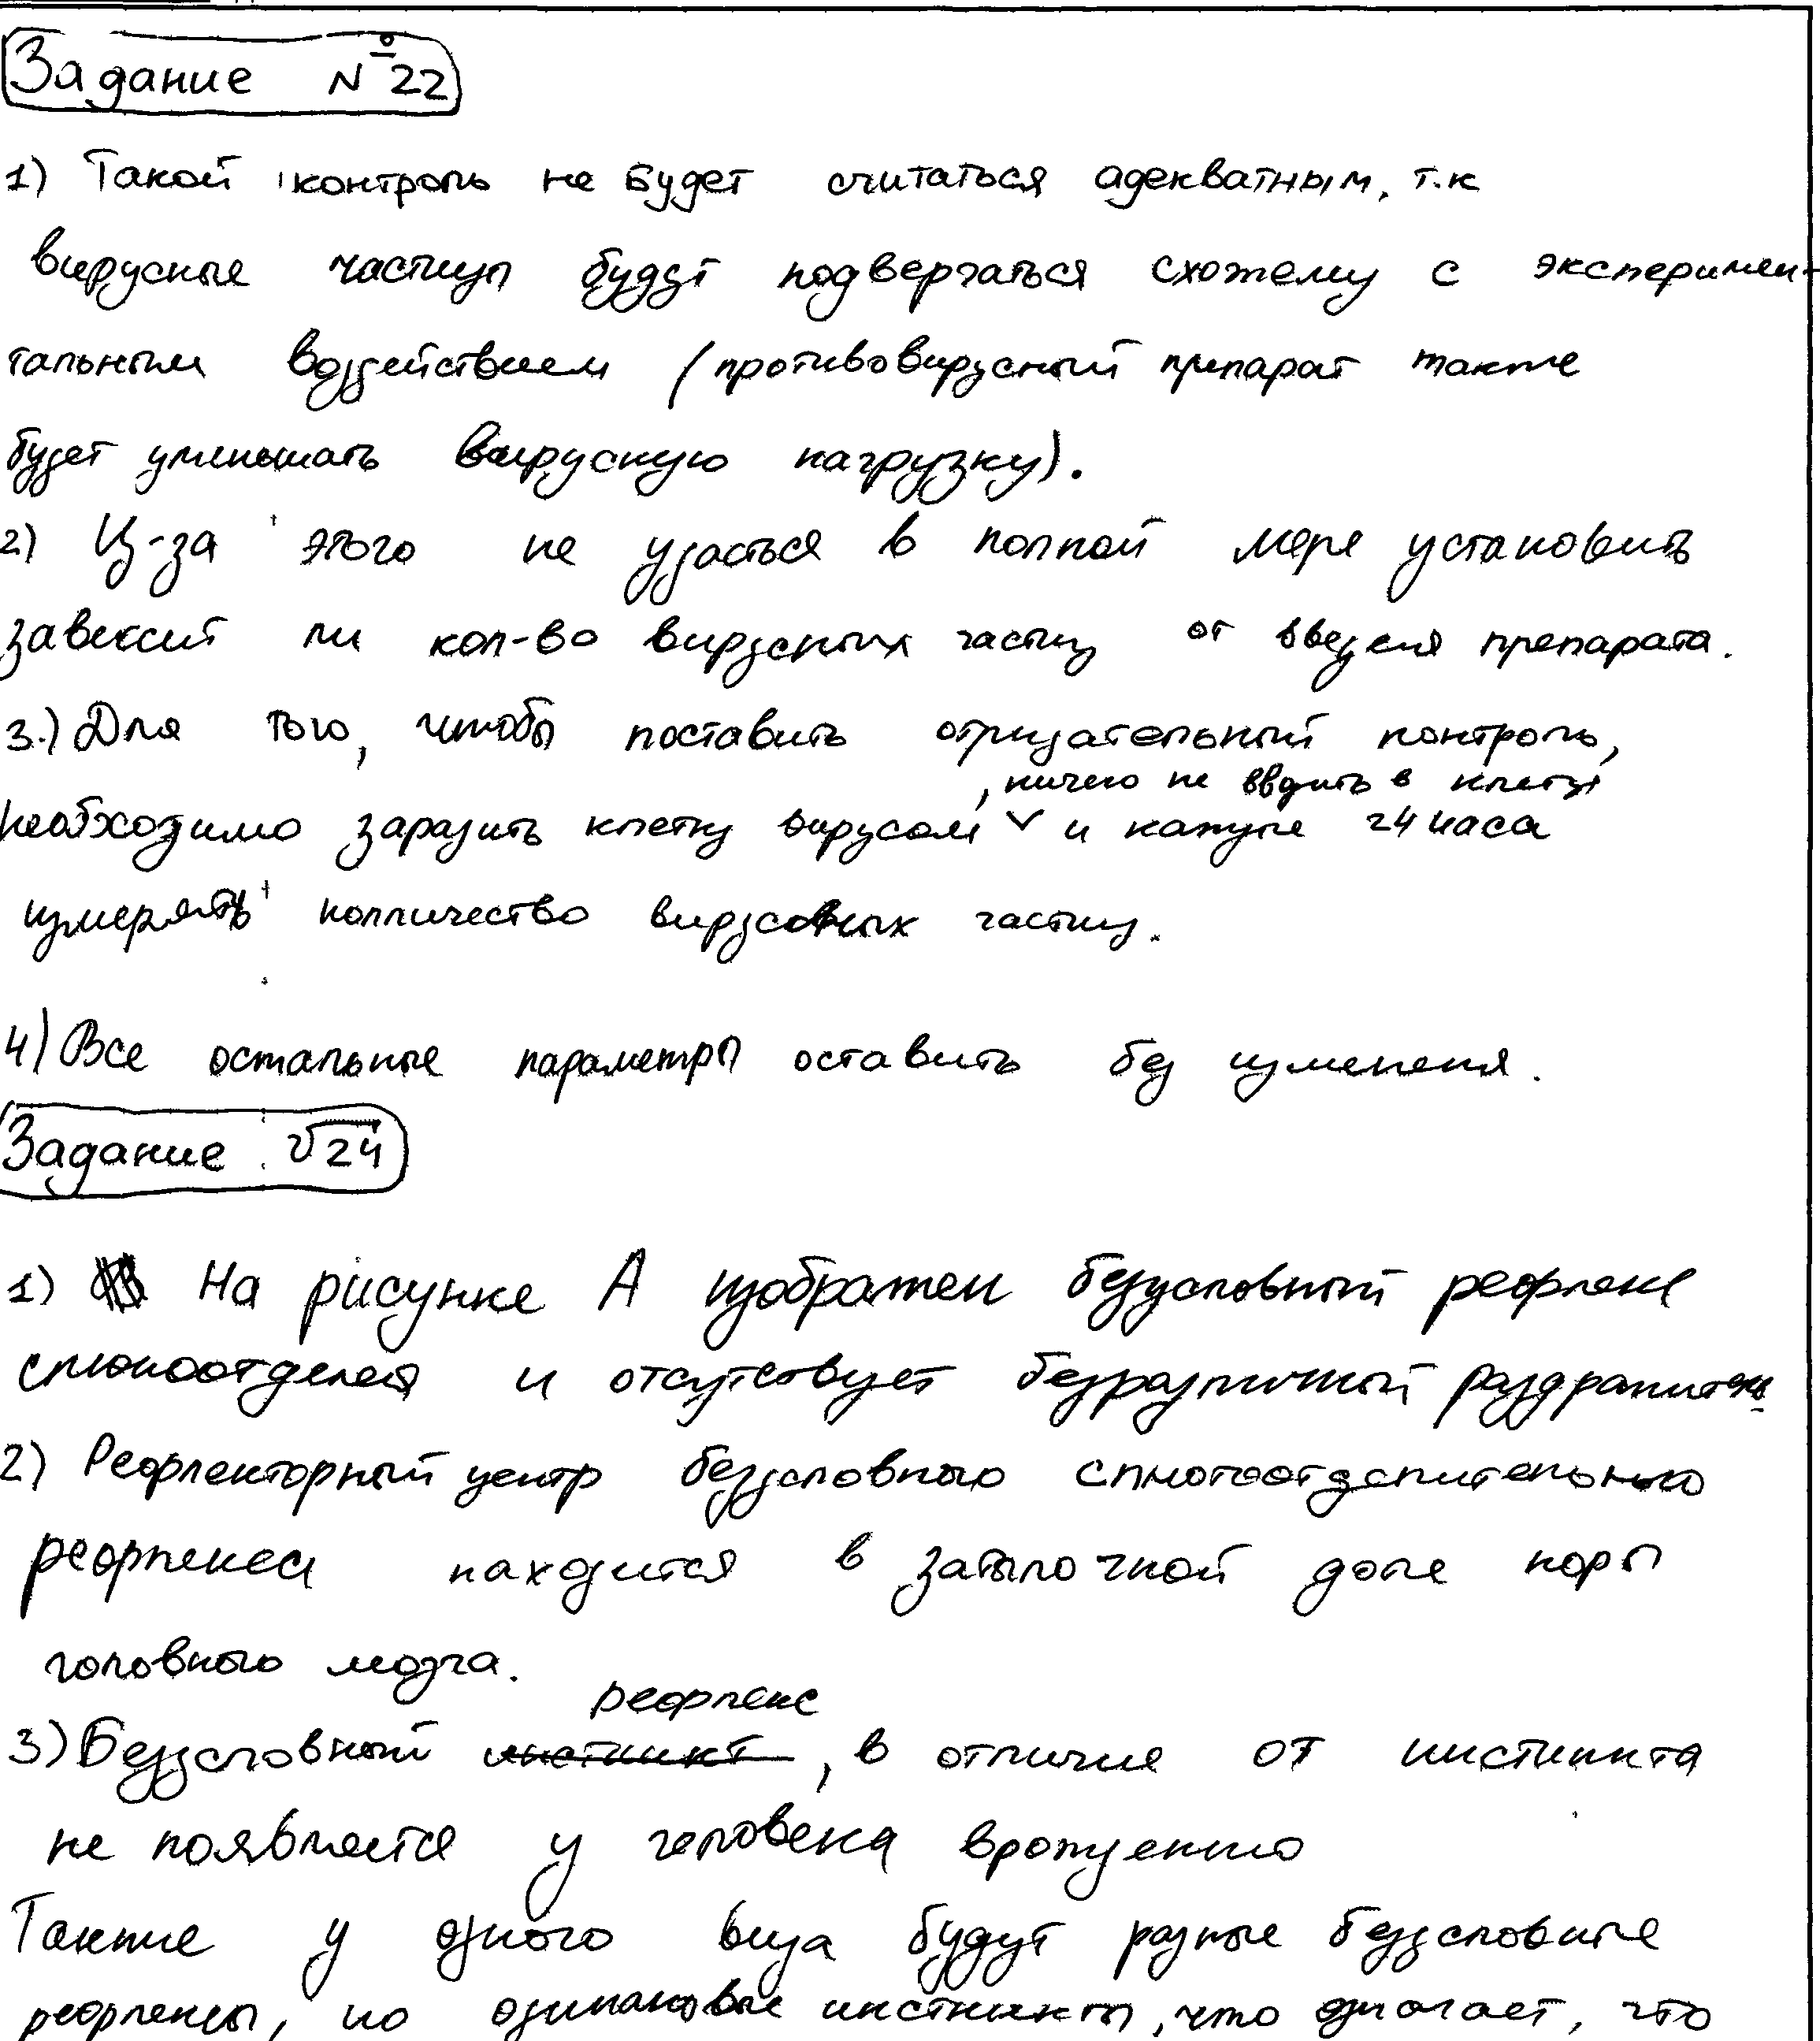 Задание №22
1) Такой контроль не будет считаться адекватным, т.к
вирусные частицы будут подвергаться схожему с эксперимен-
тальным воздействием (противовирусный препарат также
будет уменьшать вирусную нагрузку).
2) Из-за этого не удасться в полной мере установить
зависит ли кол-во вирусных частиц от введеня препарата.
3.) Для того, чтобы поставить отрицательный контроль,
, ничего не вводить в клетку
необходимо заразить клетку вирусом ∨ и каждые 24 часа
измерять колличество вирусовых частиц.
4) Все остальные параметры оставить без измененя.
Задание √24
1) На рисунке А изображен безусловный рефлекс
слюноотделея и отсутствует безразличный раздражитель
2) Рефлекторный центр безусловного слюноотделительного
рефлекса находится в затылочной доле коры
головного мозга.
рефлекс
3) Безусловный инстинкт, в отличие от инстинкта
не появляется у человека врожденно
Также у одного вида будут разные безусловные
рефлексы, но одинаковые инстинкты, что означает, что